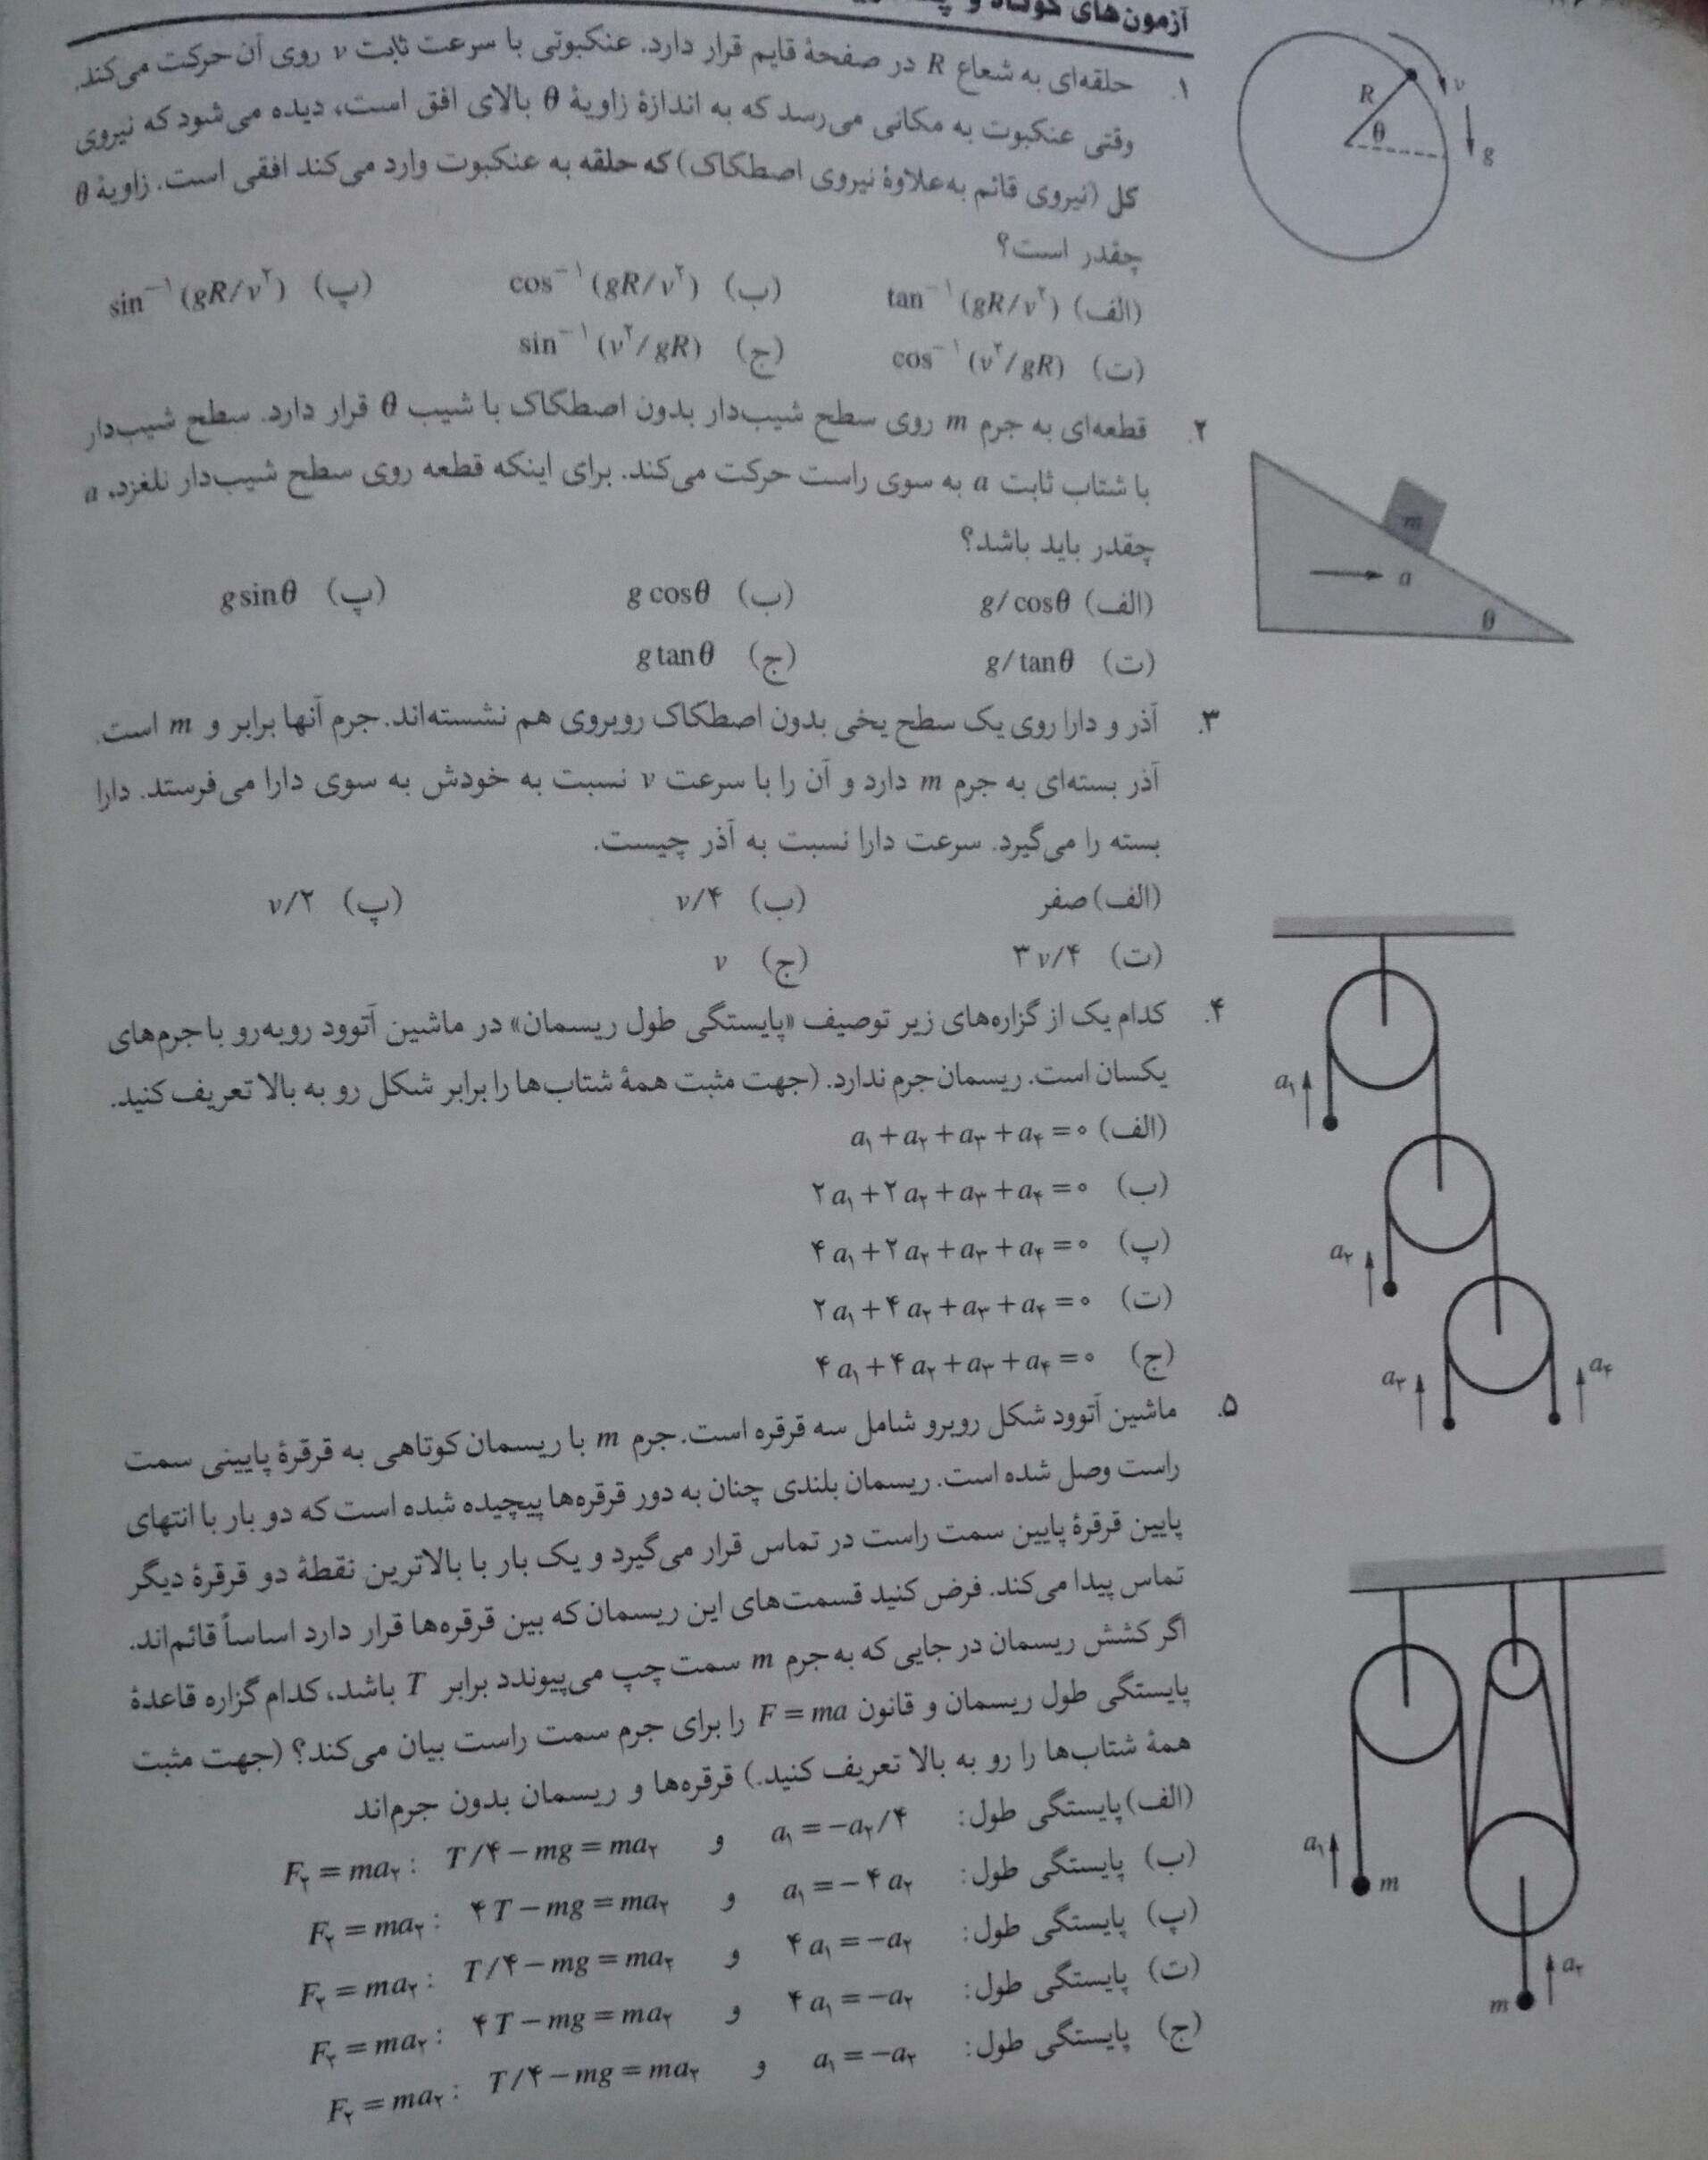 آزمون‌های کوتاه و
۱. حلقه‌ای به شعاع R در صفحهٔ قایم قرار دارد. عنکبوتی با سرعت ثابت v روی آن حرکت می‌کند.
وقتی عنکبوت به مکانی می‌رسد که به اندازهٔ زاویهٔ θ بالای افق است، دیده می‌شود که نیروی
کل (نیروی قائم به‌علاوهٔ نیروی اصطکاک) که حلقه به عنکبوت وارد می‌کند افقی است. زاویهٔ θ
چقدر است؟
الف) tan⁻¹(gR/v²) ب) cos⁻¹(gR/v²) پ) sin⁻¹(gR/v²)
ت) cos⁻¹(v²/gR) ج) sin⁻¹(v²/gR)
R θ v g
۲. قطعه‌ای به جرم m روی سطح شیب‌دار بدون اصطکاک با شیب θ قرار دارد. سطح شیب‌دار
با شتاب ثابت a به سوی راست حرکت می‌کند. برای اینکه قطعه روی سطح شیب‌دار نلغزد، a
چقدر باید باشد؟
الف) g/cosθ ب) g cosθ پ) g sinθ
ت) g/tanθ ج) g tanθ
m a θ
۳. آذر و دارا روی یک سطح یخی بدون اصطکاک روبروی هم نشسته‌اند. جرم آنها برابر و m است.
آذر بسته‌ای به جرم m دارد و آن را با سرعت v نسبت به خودش به سوی دارا می‌فرستد. دارا
بسته را می‌گیرد. سرعت دارا نسبت به آذر چیست.
الف) صفر ب) v/۴ پ) v/۲
ت) ۳v/۴ ج) v
۴. کدام یک از گزاره‌های زیر توصیف «پایستگی طول ریسمان» در ماشین آتوود روبه‌رو با جرم‌های
یکسان است. ریسمان جرم ندارد. (جهت مثبت همهٔ شتاب‌ها را برابر شکل رو به بالا تعریف کنید.
الف) a₁ + a₂ + a₃ + a₄ = ۰
ب) ۲a₁ + ۲a₂ + a₃ + a₄ = ۰
پ) ۴a₁ + ۲a₂ + a₃ + a₄ = ۰
ت) ۲a₁ + ۴a₂ + a₃ + a₄ = ۰
ج) ۴a₁ + ۴a₂ + a₃ + a₄ = ۰
a₁
a₂
a₃ a₄
۵. ماشین آتوود شکل روبرو شامل سه قرقره است. جرم m با ریسمان کوتاهی به قرقرهٔ پایینی سمت
راست وصل شده است. ریسمان بلندی چنان به دور قرقره‌ها پیچیده شده است که دو بار با انتهای
پایین قرقرهٔ پایین سمت راست در تماس قرار می‌گیرد و یک بار با بالاترین نقطهٔ دو قرقرهٔ دیگر
تماس پیدا می‌کند. فرض کنید قسمت‌های این ریسمان که بین قرقره‌ها قرار دارد اساساً قائم‌اند.
اگر کشش ریسمان در جایی که به جرم m سمت چپ می‌پیوندد برابر T باشد، کدام گزاره قاعدهٔ
پایستگی طول ریسمان و قانون F = ma را برای جرم سمت راست بیان می‌کند؟ (جهت مثبت
همهٔ شتاب‌ها را رو به بالا تعریف کنید.) قرقره‌ها و ریسمان بدون جرم‌اند
الف) پایستگی طول: a₁ = −a₂/۴ و F₂ = ma₂: T/۴ − mg = ma₂
ب) پایستگی طول: a₁ = −۴a₂ و F₂ = ma₂: ۴T − mg = ma₂
پ) پایستگی طول: ۴a₁ = −a₂ و F₂ = ma₂: T/۴ − mg = ma₂
ت) پایستگی طول: ۴a₁ = −a₂ و F₂ = ma₂: ۴T − mg = ma₂
ج) پایستگی طول: a₁ = −a₂ و F₂ = ma₂: T/۴ − mg = ma₂
a₁ m
a₂ m